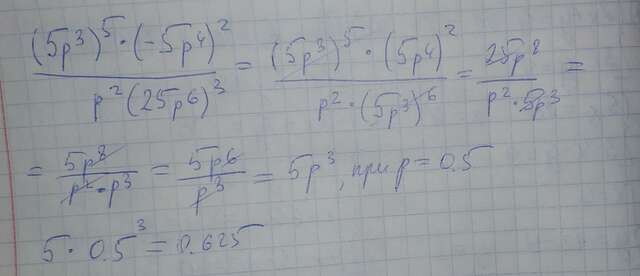 (5p³)⁵·(-5p⁴)² / p²(25p⁶)³ = (5p³)⁵·(5p⁴)² / p²·(5p³)⁶ = 25p⁸ / p²·5p³ =
= 5p⁸ / p²·p³ = 5p⁶ / p³ = 5p³, при p = 0.5
5·0.5³ = 0.625